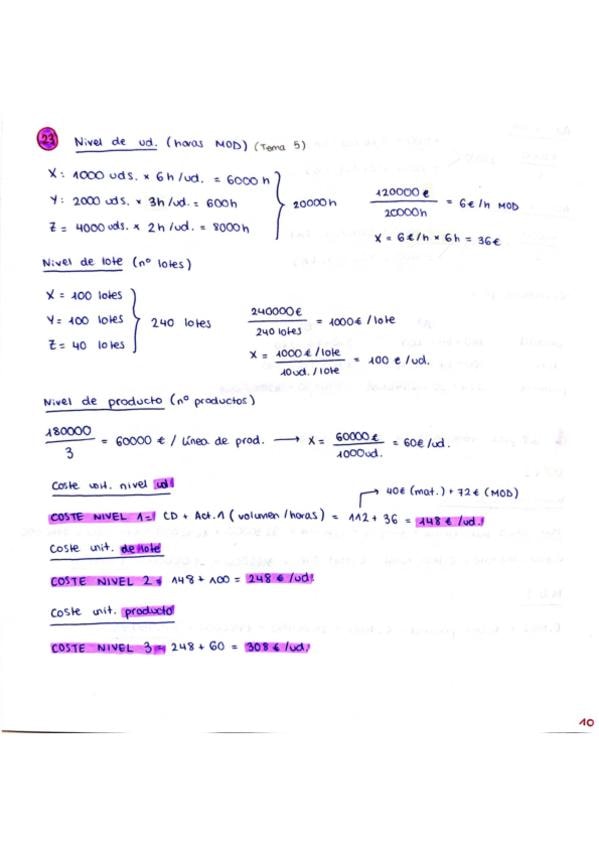 23 Nivel de ud. (horas MOD) (Tema 5)
X: 1000 uds. × 6h/ud. = 6000 h
Y: 2000 uds. × 3h/ud. = 600h
Z = 4000 uds. × 2h/ud. = 8000h
20000h
120000 €
20000h
= 6€/h MOD
X = 6€/h × 6h = 36€
Nivel de lote (nº lotes)
X = 100 lotes
Y = 100 lotes
Z = 40 lotes
240 lotes
240000€
240 lotes
= 1000€/lote
X = 1000€/lote
10ud./lote
= 100 €/ud.
Nivel de producto (nº productos)
180000
3
= 60000 € / Línea de prod. → X = 60000€
1000ud.
= 60€/ud.
Coste unit. nivel ud
40€ (mat.) + 72€ (MOD)
COSTE NIVEL 1 = CD + Act.1 (volumen/horas) = 112 + 36 = 148€/ud.
Coste unit. de lote
COSTE NIVEL 2 = 148 + 100 = 248€/ud.
Coste unit. producto
COSTE NIVEL 3 = 248 + 60 = 308€/ud.
10